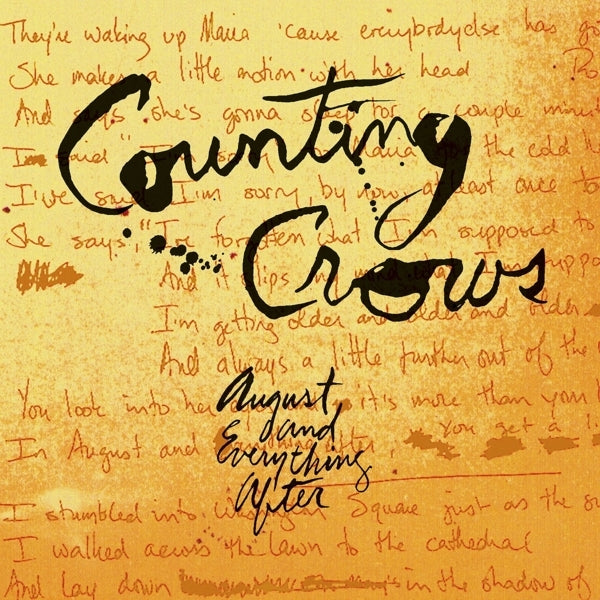 They're waking up Maria 'cause everybrdyelse has go
She makes a little motion with her head
And says she's gonna sleep for a couple minut
Counting
Crows
I said, I'm sorry to Maria the cold
I've said I'm sorry by now, at least once to
She says, "I've forgotten what I'm supposed to
And it slips my mind what I'm suppo
I'm getting older and older and older
And always a little further out of the
You look into her it's more than you
In August and Everything After you get a li
August
and
Everything
After
I stumbled into Square just as the su
I walked across the lawn to the cathedral
And lay down in the shadow of